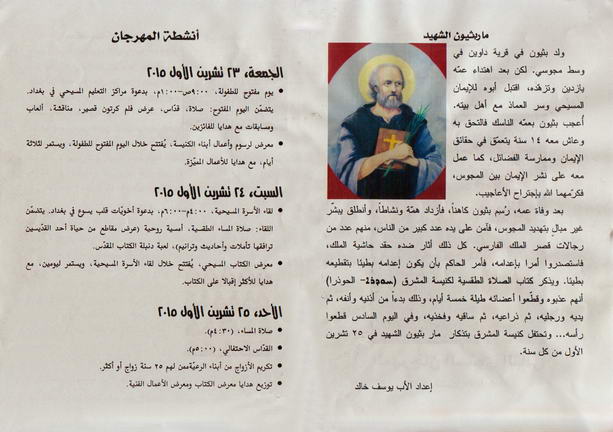 ماربثيون الشهيد
ولد بثيون في قرية داوين في
وسط مجوسي. لكن بعد اهتداء عمّه
يازدين وتزهّده، اقتبل أبوه للإيمان
المسيحي وسر العماذ مع أهل بيته.
أعجب بثيون بعمّه الناسك فالتحق به
وعاش معه ١٤ سنة يتعمّق في حقائق
الإيمان وممارسة الفضائل، كما عمل
معه على نشر الإيمان بين المجوس،
فكرّمهما الله بإجتراح الأعاجيب.
بعد وفاة عمه، رُسم بثيون كاهناً، فأزداد همّة ونشاطاً، وأنطلق يبشّر
غير مبالٍ بتهديد المجوس، فآمن على يده عدد كبير من الناس، منهم عدد من
رجالات قصر الملك الفارسي. كل ذلك أثار ضده حقد حاشية الملك،
فاستصدروا أمرا بإعدامه، فأمر الحاكم بأن يكون إعدامه بطيئا بتقطيعه
بطيئا. ويذكر كتاب الصلاة الطقسية لكنيسة المشرق (ܚܘܕܪܐ- الحوذرا)
أنهم عذبوه وقطّعوا أعضائه طيلة خمسة أيام، وذلك بدءاً من أذنيه وأنفه، ثم
يديه ورجليه، ثم ذراعيه، ثم ساقيه وفخذيه، وفي اليوم السادس قطعوا
رأسه... وتحتفل كنيسة المشرق بتذكار مار بثيون الشهيد في ٢٥ تشرين
الأول من كل سنة.
إعداد الأب يوسف خالد
أنشطة المهرجان
الجمعة، ٢٣ تشرين الأول ٢٠١٥
يوم مفتوح للطفولة، ٩:٠٠ص-١:٠٠م، بدعوة مراكز التعليم المسيحي في بغداد.
يتضمّن اليوم المفتوح: صلاة، قدّاس، عرض فلم كرتون قصير، مناقشة، ألعاب
ومسابقات مع هدايا للفائزين.
معرض لرسوم وأعمال أبناء الكنيسة، يُفتتح خلال اليوم المفتوح للطفولة، ويستمر لثلاثة
أيام، مع هدايا للأعمال المميّزة.
السبت، ٢٤ تشرين الأول ٢٠١٥
لقاء الأسرة المسيحية، ٤:٠٠-٦:٠٠م، بدعوة أخويّات قلب يسوع في بغداد. يتضمّن
اللقاء: صلاة المساء الطقسية، أمسية روحية (عرض مقاطع من حياة أحد القدّيسين
ترافقها تأملات وأحاديث وترانيم)، لعبة دنبلة الكتاب المقدّس.
معرض الكتاب المسيحي، يُفتتح خلال لقاء الأسرة المسيحية، ويستمر ليومين، مع
هدايا للأكثر إقبالا على الكتاب.
الأحد، ٢٥ تشرين الأول ٢٠١٥
صلاة المساء، (٤:٣٠م).
القدّاس الاحتفالي، (٥:٠٠م).
تكريم الأزواج من أبناء الرعيّة ممن لهم ٢٥ سنة زواج أو أكثر.
توزيع هدايا معرض الكتاب ومعرض الأعمال الفنية.